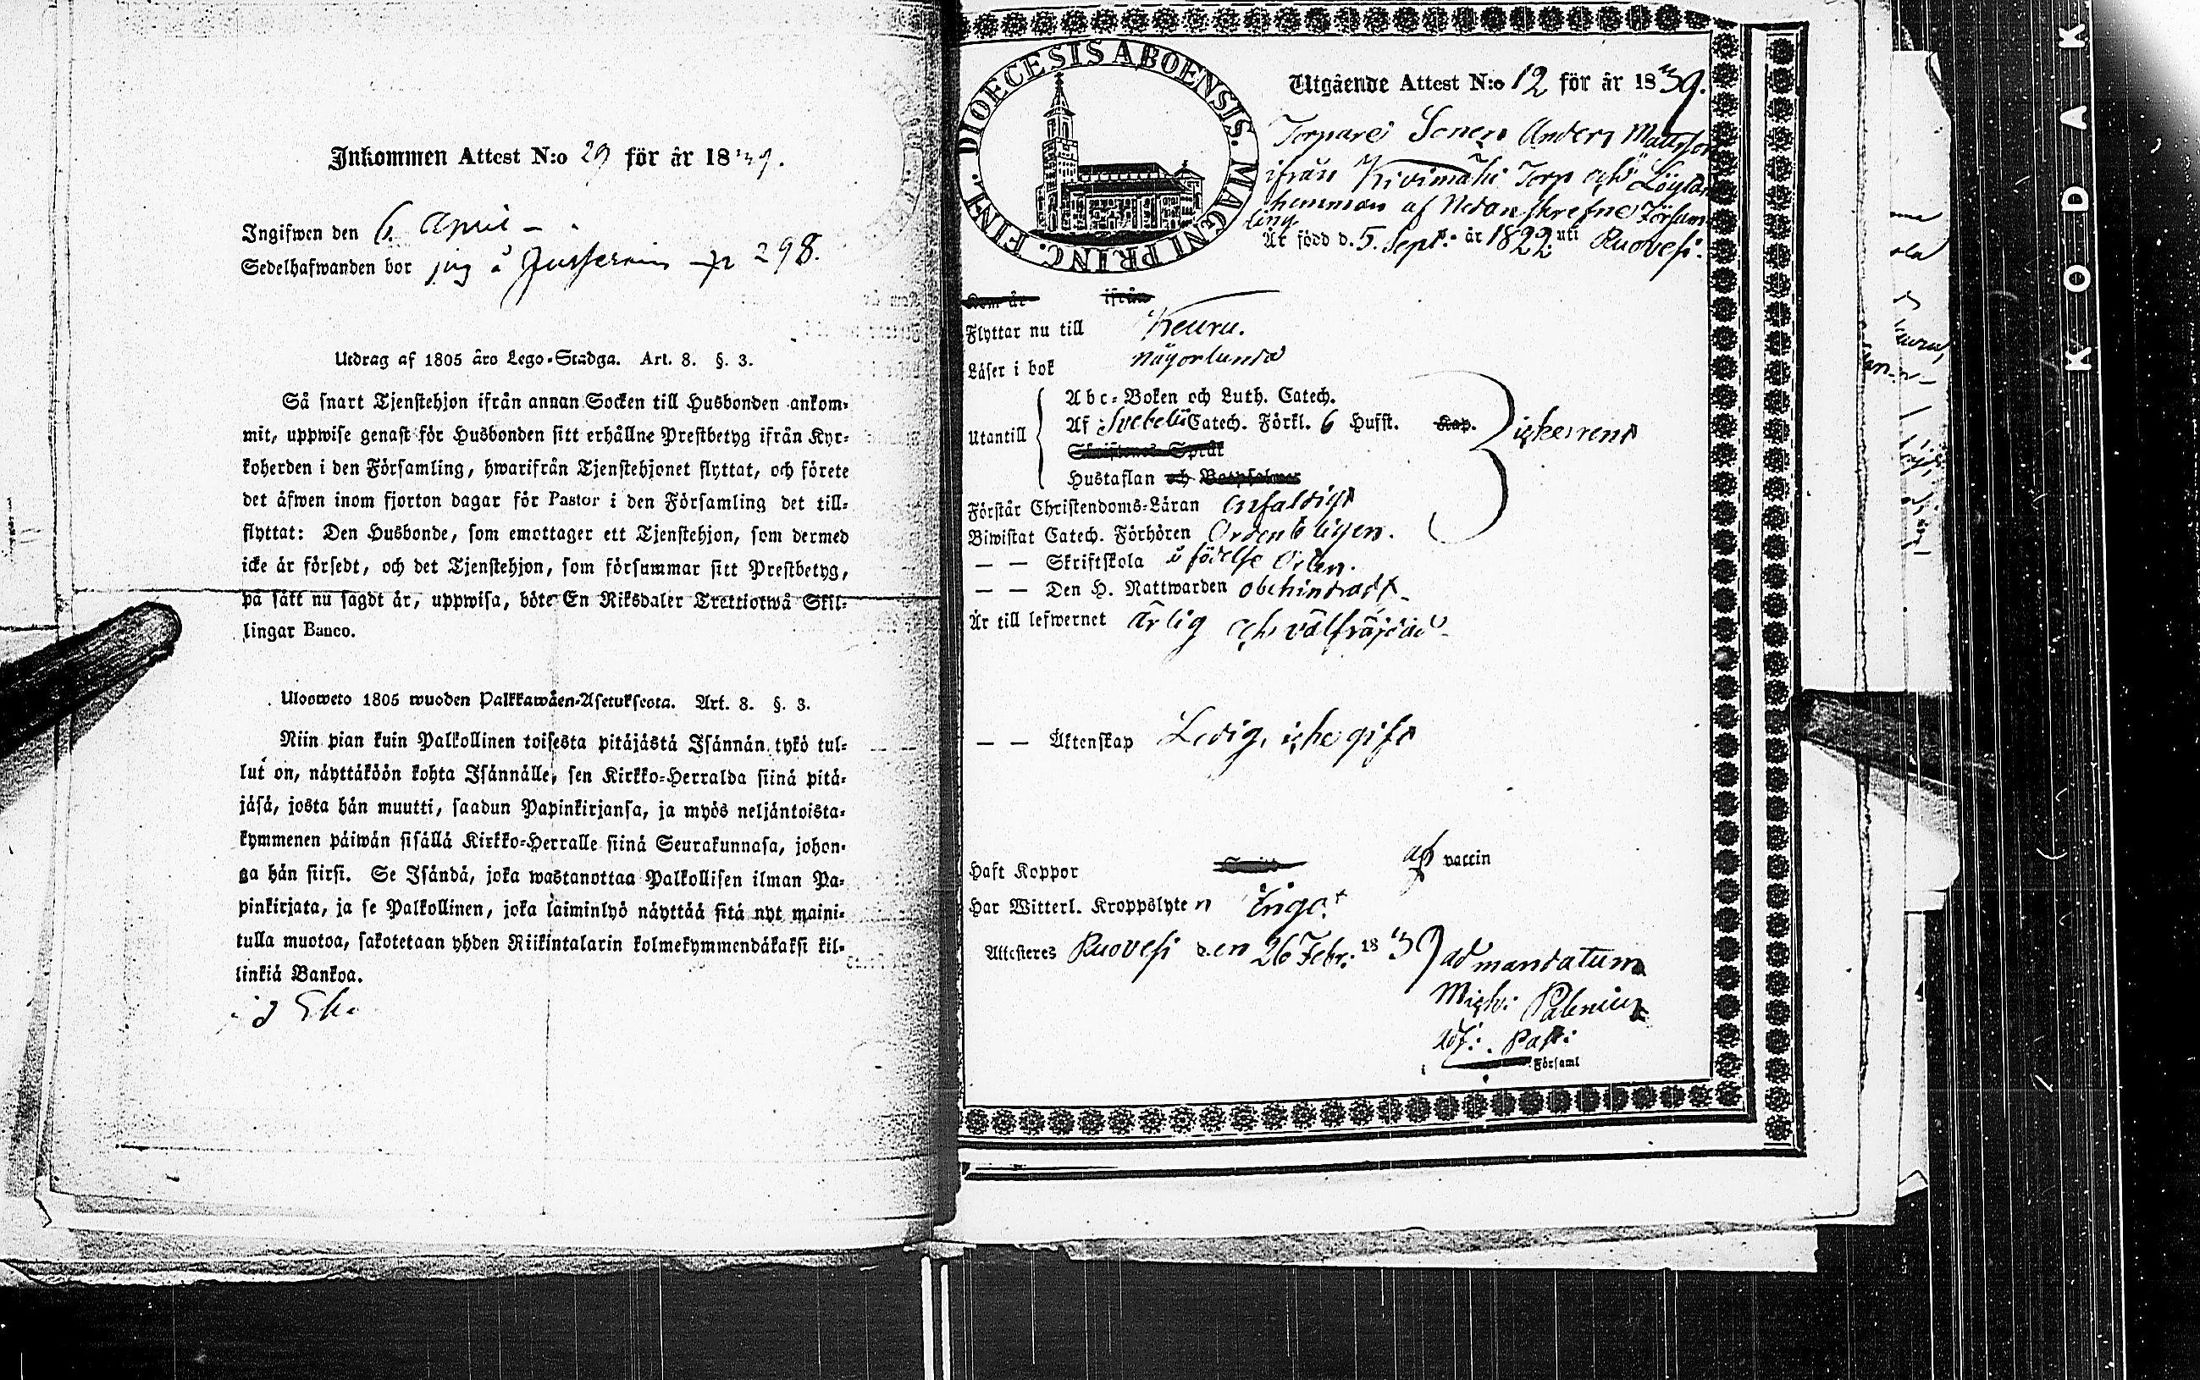 Inkommen Attest N:o 29 för år 1839.
Ingifwen den 6 April
Sedelhafwanden bor p 298.
Utdrag af 1805 års Lego-Stadga. Art. 8. §. 3.
Så snart Tjenstehjon ifrån annan Socken till Husbonden ankom-
mit, uppwise genast för Husbonden sitt erhållne Prestbetyg ifrån Kyr-
koherden i den Församling, hwarifrån Tjenstehjonet flyttat, och förete
det äfwen inom fjorton dagar för Pastor i den Församling det till-
flyttat: Den Husbonde, som emottager ett Tjenstehjon, som dermed
icke är försedt, och det Tjenstehjon, som försummar sitt Prestbetyg,
på sätt nu sagdt är, uppwisa, böte En Riksdaler Trettiotwå Skil-
lingar Banco.
Ulosweto 1805 wuoden Palkkawäen-Asetuksesta. Art. 8. §. 3.
Niin pian kuin Palkollinen toisesta pitäjästä Isännän tykö tul-
lut on, näyttäköön kohta Isännälle, sen Kirkko-Herralda siinä pitä-
jäsä, josta hän muutti, saadun Papinkirjansa, ja myös neljäntoista-
kymmenen päiwän sisällä Kirkko-Herralle siinä Seurakunnasa, johon-
ga hän siirsi. Se Isändä, joka wastanottaa Palkollisen ilman Pa-
pinkirjata, ja se Palkollinen, joka laiminlyö näyttää sitä nyt maini-
tulla muotoa, sakotetaan yhden Riikintalarin kolmekymmendäkaksi kil-
linkiä Bankoa.
DIOECESIS ABOENSIS. MAGNI PRINC. FINL.
Utgående Attest N:o 12 för år 1839.
Torpare Sonen Anders Mattsson
ifrån Kivimäki Torp och
hemman af Nedanskrefne Försam
ling
Är född d. 5. Sept. år 1822 uti Ruovesi.
Kom år ifrån
Flyttar nu till Keuru.
Läser i bok någorlunda
Utantill
Abc-Boken och Luth. Catech.
Af Svebelii Catech. Förkl. 6 Hufst. Kap.
Skriftenes Språk
Hustaflan och Botpsalmer
Förstår Christendoms-Läran enfaldigt
Biwistat Catech. Förhören Ordenteligen.
— — Skriftskola i födelse Orten.
— — Den H. Nattwarden obehindradt
Är till lefwernet ärlig och välfräjdad
— — Äktenskap Ledig, icke gift
Haft Koppor af vaccin
Har Witterl. Kroppslyten Inga
Attesteres Ruovesi den 26 Febr: 1839
ad mandatum
Mich: Palenius
Adj: Past:
Församl
KODAK